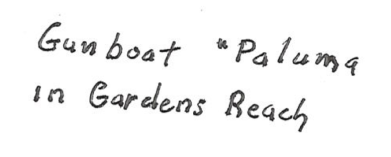 Gunboat "Paluma
in Gardens Reach